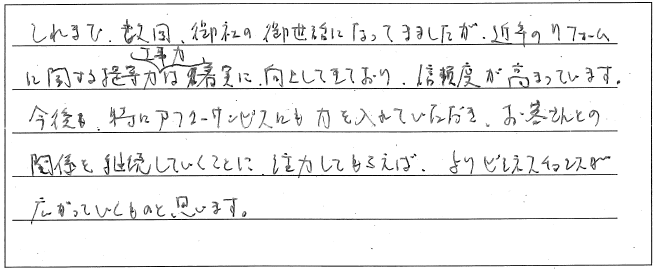 これまで、数回、御社の御世話になってきましたが、近年のリフォーム
工事力
に関する提案力は着実に、向上してきており、信頼度が高まっています。
今後も、特にアフターサービスにも力を入れていただき、お客さんとの
関係を継続していくことに、注力してもらえば、よりビジネスチャンスが
広がっていくものと思います。